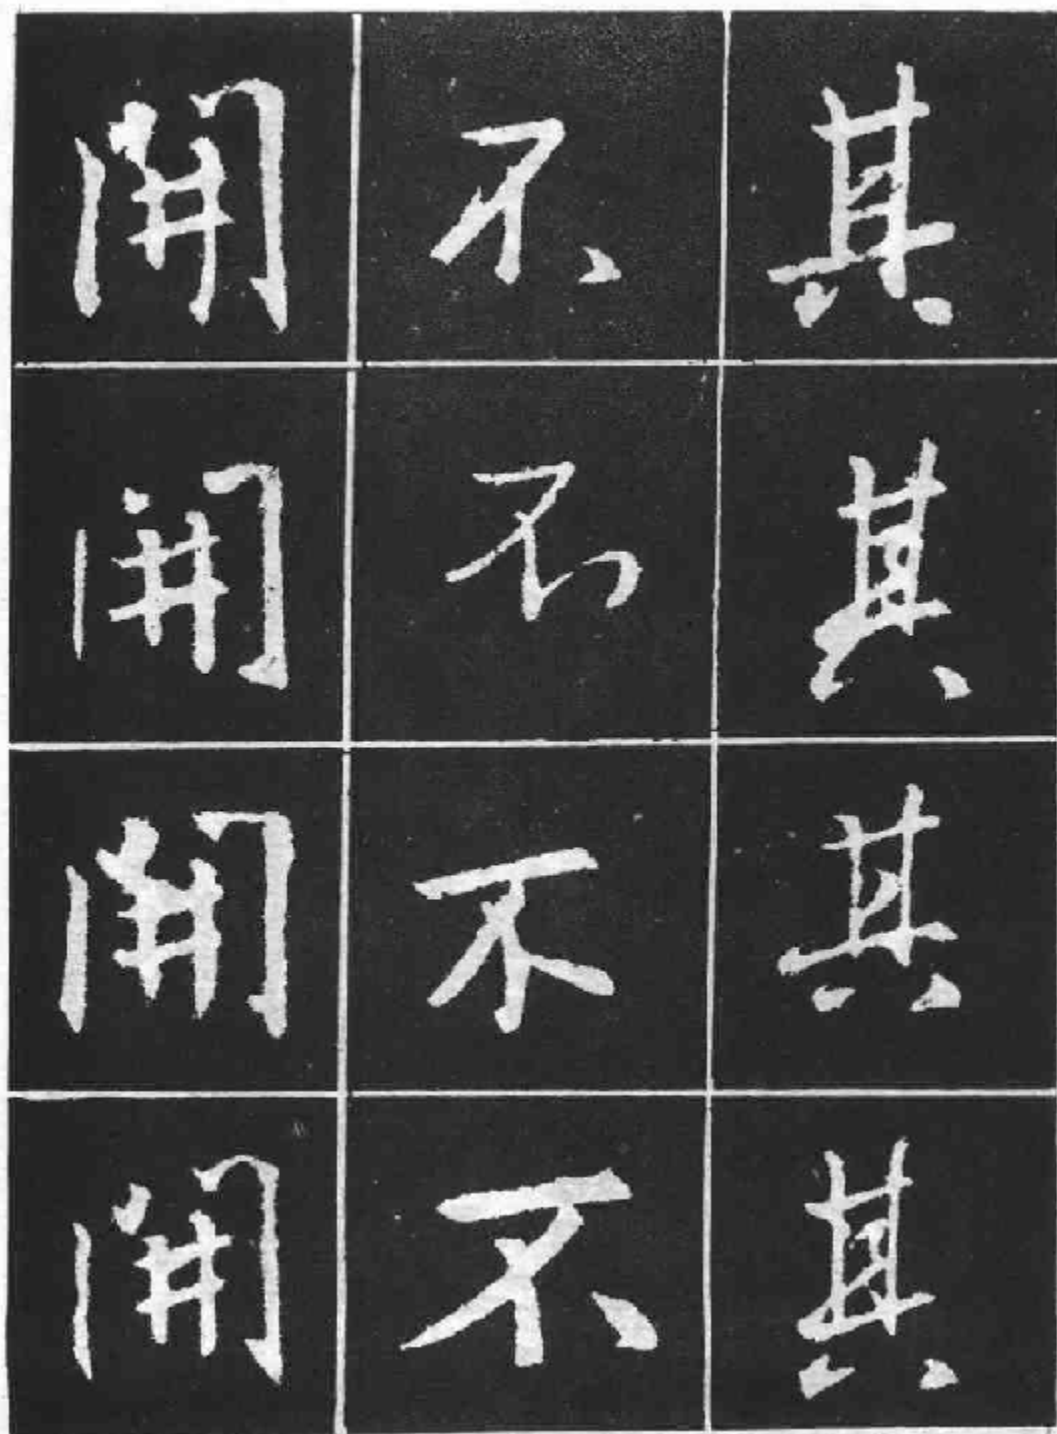 其其其其
不不不不
開開開開